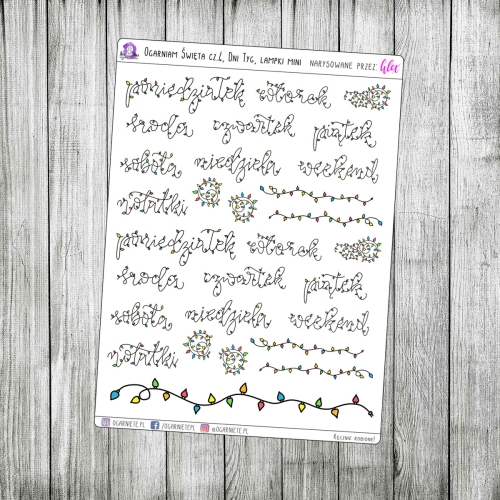 Ogarniam Święta cz.1, Dni Tyg, lampki mini narysowane przez: Glox
poniedziałek wtorek
środa czwartek piątek
sobota niedziela weekend
notatki
poniedziałek wtorek
środa czwartek piątek
sobota niedziela weekend
notatki
ogarniete.pl /ogarnietepl @ogarnietepl
Ręcznie robione!